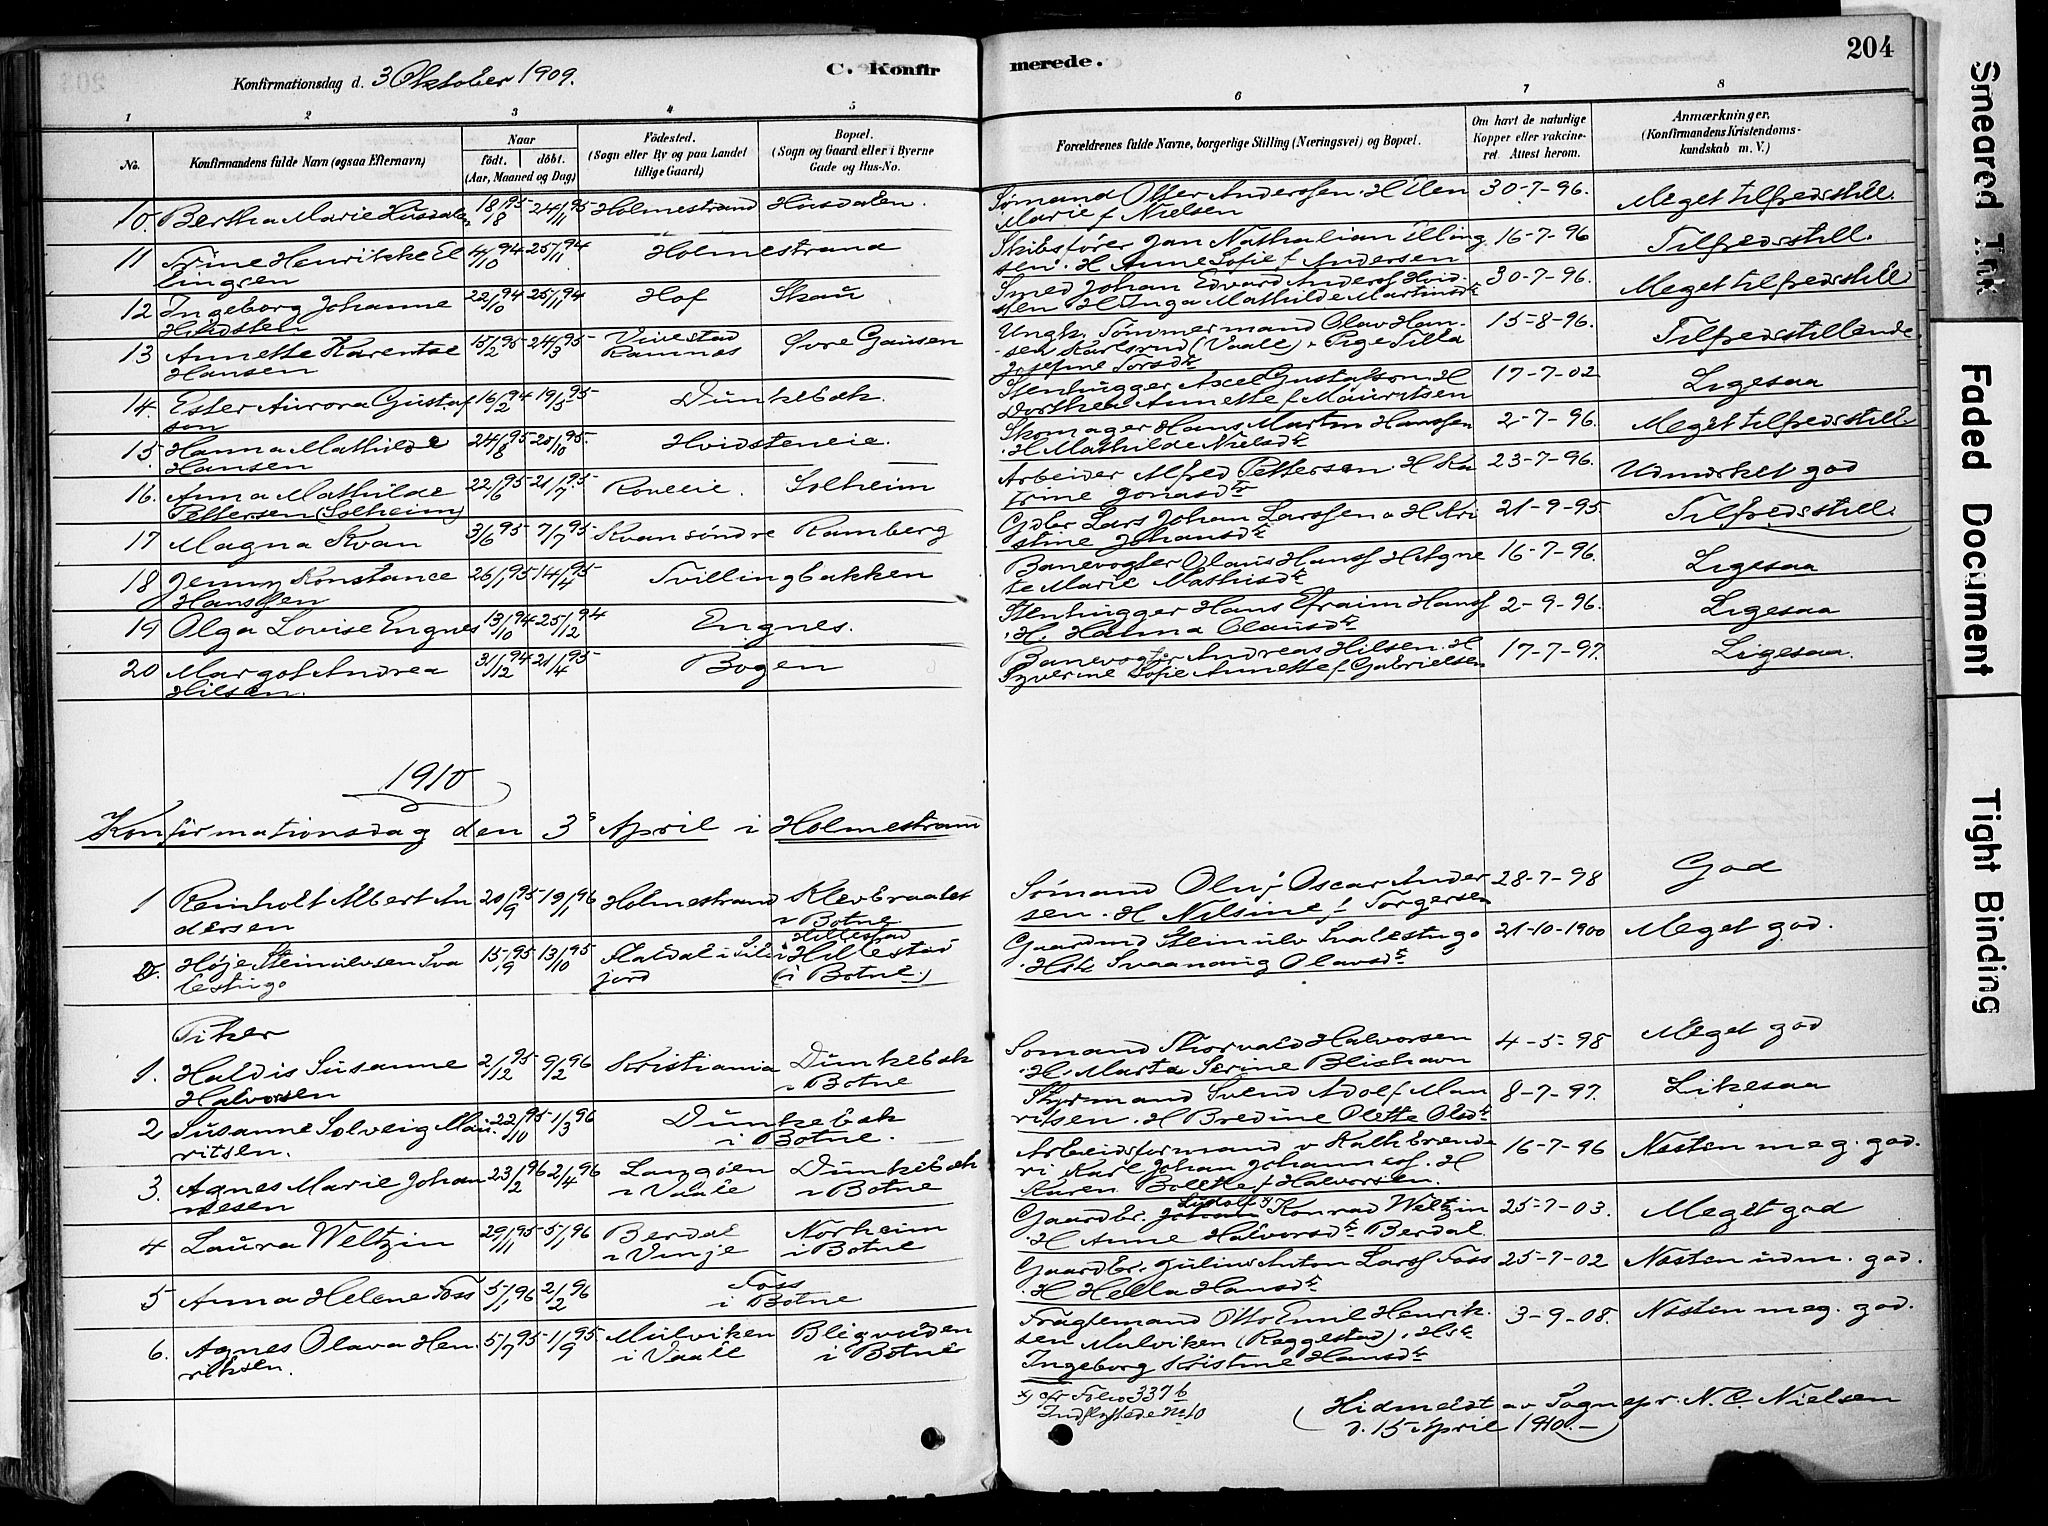 204
Konfirmationsdag d. 3 Oktober 1909.
C. Konfirmerede.
1 2 3 4 5 6 7 8
No.
Konfirmandens fulde Navn (ogsaa Efternavn)
Naar
födt. döbt.
(Aar, Maaned og Dag)
Födested.
(Sogn eller By og paa Landet
tillige Gaard)
Bopæl.
(Sogn og Gaard eller i Byerne
Gade og Hus-No.
Forældrenes fulde Navne, borgerlige Stilling (Næringsvei) og Bopæl.
Om havt de naturlige
Kopper eller vakcine-
ret. Attest herom.
Anmærkninger.
(Konfirmandens Kristendoms-
kundskab m. V.)
10. Bertha Marie Husdalen 18/8 95 24/11 95 Holmestrand Husdalen.
Sømand Otter Anderssen. H Elen
Marie f Nielsen
30-7-96. Meget tilfredsstill.
11 Trine Henrikke El
lingsen
4/10 94 25/11 94 Holmestrand
Skibsfører Jan Nathalian Elling
sen. H Anne Sofie f Andersen
16-7-96 Tilfredsstill.
12 Ingeborg Johanne
Hvidsten
22/10 94 25/11 94 Hof Skau
Smed Johan Edvard Andersf Hvid-
sten H Inga Mathilde Martinsdtr
30-7-96. Meget tilfredsstill
13 Annette Karentse
Hansen
15/2 95 24/3 95 Vivestad
Ramnæs
Øvre Gausen
Ungk. Tömmermand Olav Han-
sen Karlsrud (Vaale) o Pige Tilla
Josefine Torsdtr
15-8-96. Tilfredsstillende.
14. Ester Aurora Gustaf
son
16/2 94 19/5 95 Dunkebæk.
Stenhugger Axel Gustafson. H
Dorthea Annette f Mauritsen
17-7-02 Ligesaa
15. Hanna Mathilde
Hansen
24/8 95 20/10 95. Hvidsteneie.
Skomager Hans Martin Hanssen
. H Mathilde Nielsdtr
2-7-96. Meget tilfredsstill
16. Anna Mathilde
Pettersen (Solheim)
22/6 95 21/7 95 Roveeie. Solheim
Arbeider Alfred Pettersen. H Ka
trine Jonasdtr
23-7-96. Udmærket god
17 Magna Kvan 3/6 95 7/7 95 Kvan söndre Ramberg
Gdbr Lars Johan Larssen o H Kri
stine Johansdtr
21-9-95. Tilfredsstill.
18 Jenny Konstance
Hanssen
26/1 95 14/4 95 Tvillingbakken
Banevogter Olaus Hansf H Agne
te Marie Mathisdtr
16-7-96. Ligesaa
19 Olga Lovise Engnes 13/10 94 25/12 94 Engnes.
Stenhugger Hans Efraim Hansf
. H. Hanna Olausdtr
2-9-96. Ligesaa
20 Margot Andrea
Hilsen.
31/12 94 21/4 95 Bogen
Banevogter Andreas Hilsen. H
Syverine Sofie Annette f. Gabrielsen
17-7-97. Ligesaa.
1910
Konfirmationsdag den 3s April i Holmestrand
1 Reinholt Albert An
dersen
20/9 95 19/1 96 Holmestrand Klevbraatet
i Botne
Sömand Oluf Oscar Ander
sen. H Nilsine f. Torgersen
28-7-98 God
2. Höje Steinulvsen Sva
lestugo
15/9 95 13/10 95 Flatdal i Sile
jord
Hillestad
Hillestad
(i Botne)
Gaardmd Steinulv Svalestugo
. Hstr Svaanaug Olavsdtr
21-10-1900 Meget god.
Piker
1. Haldis Susanne
Halvorsen
2/12 95 9/2 96 Kristiania Dunkebæk
i Botne
Sömand Thorvald Halvorsen
. H. Marta Serine Blishavn
4-5-98 Meget god
2 Susanne Solveig Mau
ritsen.
22/10 95 1/3 96 Dunkebæk
i Botne.
Styrmand Svend Adolf Mau
ritsen. H Bredine Olette Olsdtr
8-7-97. Likesaa
3. Agnes Marie Johan
nesen
23/2 96 2/4 96 Langöen
i Vaale
Dunkebæk
i Botne
Arbeidsformand v Kalkbrende
ri Karl Johan Johannesf. H
Karen Bolette f Halvorsen.
16-7-96 Næsten meg. god.
4 Laura Weltzin 29/11 95 5/1 96 Berdal
i Vinje
Norheim
i Botne
Gaardbr. Johan Ludolf x) Konrad Weltzin
H Anne Halvorsdtr Berdal
25-7-03. Meget god
5 Anna Helene Foss 5/1 96 2/2 96 Foss
i Botne
Gaardbr. Julius Anton Larsf Foss
. H Hella Hansdtr
25-7-02 Næsten udm. god.
6. Agnes Olava Hen
riksen.
5/7 95 1/9 95 Mulviken
i Vaale
Bligvuden
i Botne
Fragtemand Otto Emil Henrik-
sen Mulviken (Reggestad). Hstr
Ingeborg Kristine Hansdtr
3-9-08. Næsten meg. god.
x) cfr Folio 337 b
Indflyttede No 10
(Hidmeldt av Sognepr. N. C. Nielsen
d. 15 April 1910.-)
Smeared Ink
Faded Document
Tight Binding